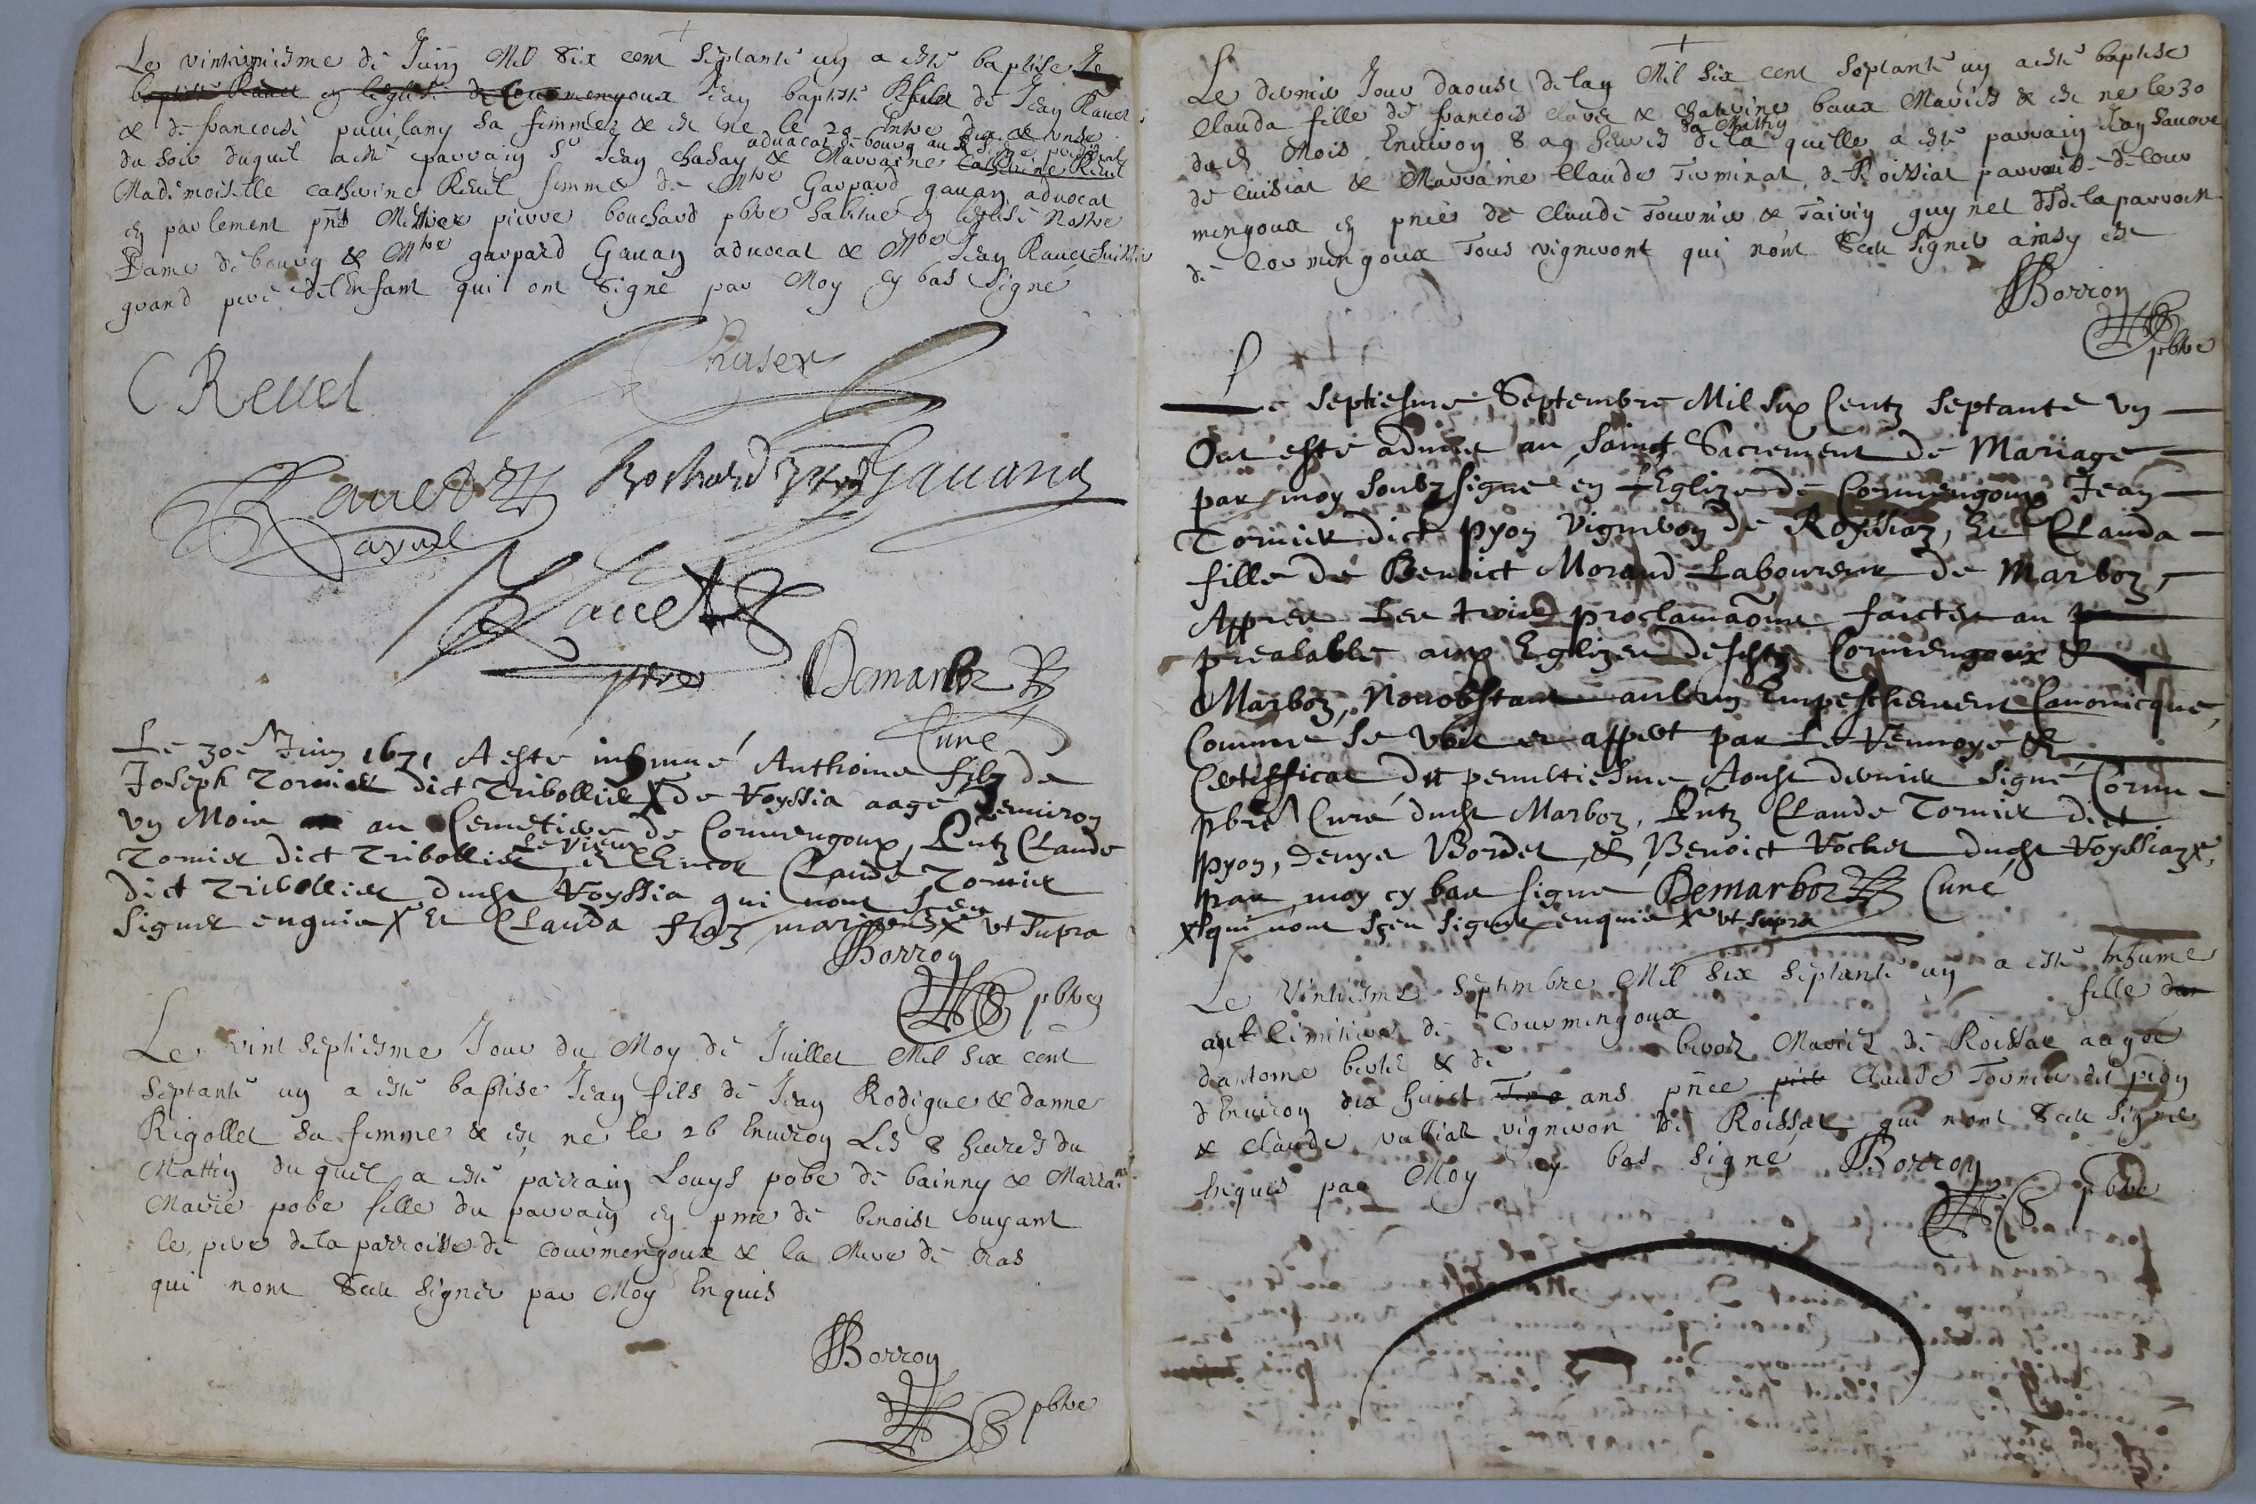 Le vintuniesme de Juin Mil Six cent septante un a esté baptisé
en leglise de Courmengoux Jean baptiste fils de Jean Ravet
& de francoise puvilany sa femme & est ne le 20 Entre dix & unze
advocat de bourg au siege presidial
du soir duquel a esté parrain Sr Jean chasay & Marraine Catherine Revel
Mademoiselle catherine Revel femme de Mtre Gaspard gavan advocat
en parlement pnts Messire pierre bouchard pbre habitué en leglise Nostre
Dame de bourg & Mtre gaspard Gavan advocat & Mtre Jean Ravet
grand pere de lenfant qui ont signé par Moy cy bas signé
C Revel
Ravet
Bochard
Gavand
Ravet
Demarboz
Curé
Le 30e Juin 1671 A esté inhumé Anthoine filz de
Joseph Tornier dict Tribollier de Royssia aagé denviron
un Mois au Cemetiere de Courmengoux, Pntz Claude
le vieux
Tornier dict Tribollier & Encor Claude Tornier
dict Tribollier dudt Royssia qui nont sceu
signer enquis Et Clauda ut supra
Borron
pbre
Le vint septiesme Jour du Moy de Juillet Mil Six cent
septante un a esté baptisé Jean fils de Jean Rodigue & danne
Rigollet sa femme & est ne le 26 Environ Les 8 heures du
Mattin duquel a esté parrain Louys pobe de bainny & Marrane
Marie pobe fille du parrain en pnce de benoist ouyant
le pere de la parroisse de courmengoux & la Mere de bras
qui nont Sceu signer par Moy Enquis
Borron
pbre
Le dernier Jour daoust de lan Mil Six cent Septante un a esté baptisé
Clauda fille de francois clave & catherine baux Mariés & est ne le 30
du Mattin
dud Mois Environ 8 a 9 heures de la quelle a esté parrain Jean Savove
de cuisiat & Marraine Claude Terminat de Roissiat parroisse de Cour
mengoux en pnce de Claude Tournier & Taivin guynet de la parroisse
de Courmengoux Tous vignerons qui nont Sceu signer ainsy est
Borron
pbre
Le septiesme Septembre Mil six Centz septante un
Ont esté admis au sainct Sacrement de Mariage
par moy soubzsigné en LEglize de Cormengoux Jean
Tornier dict pyon vigneron de Royssiaz, Et Clauda
fille de Benoict Morand Laboureur de Marboz,
Appres Les trois proclamaons faictes au
prealable aux Eglizes desdts Cormengoux &
Marboz, Nonobstant aulcun Empeschement Canonicque,
Comme se voit et appert par Le Renvoye &
Certifficat du penultiesme Aoust dernier signé Cornu
pbre Curé dudt Marboz, Pntz Claude Tornier dict
pyon, Denys Bordet, & Benoict Vochet dudt Royssiaz,
par moy cy bas signé Demarboz Curé
qui nont sçeu signer enquis ut supra
Le Vintiesme Septembre Mil Six Septante un a esté Inhumé
au Cimitiere de Courmengoux fille
dantoine bertet & de Mariés de Roissat aagée
dEnviron dix huict ans pnce Claude Tournier dit pion
& claude vulliat vigneron de Roissat qui nont Sceu signer
Enquis par Moy cy bas signé Borron
pbre